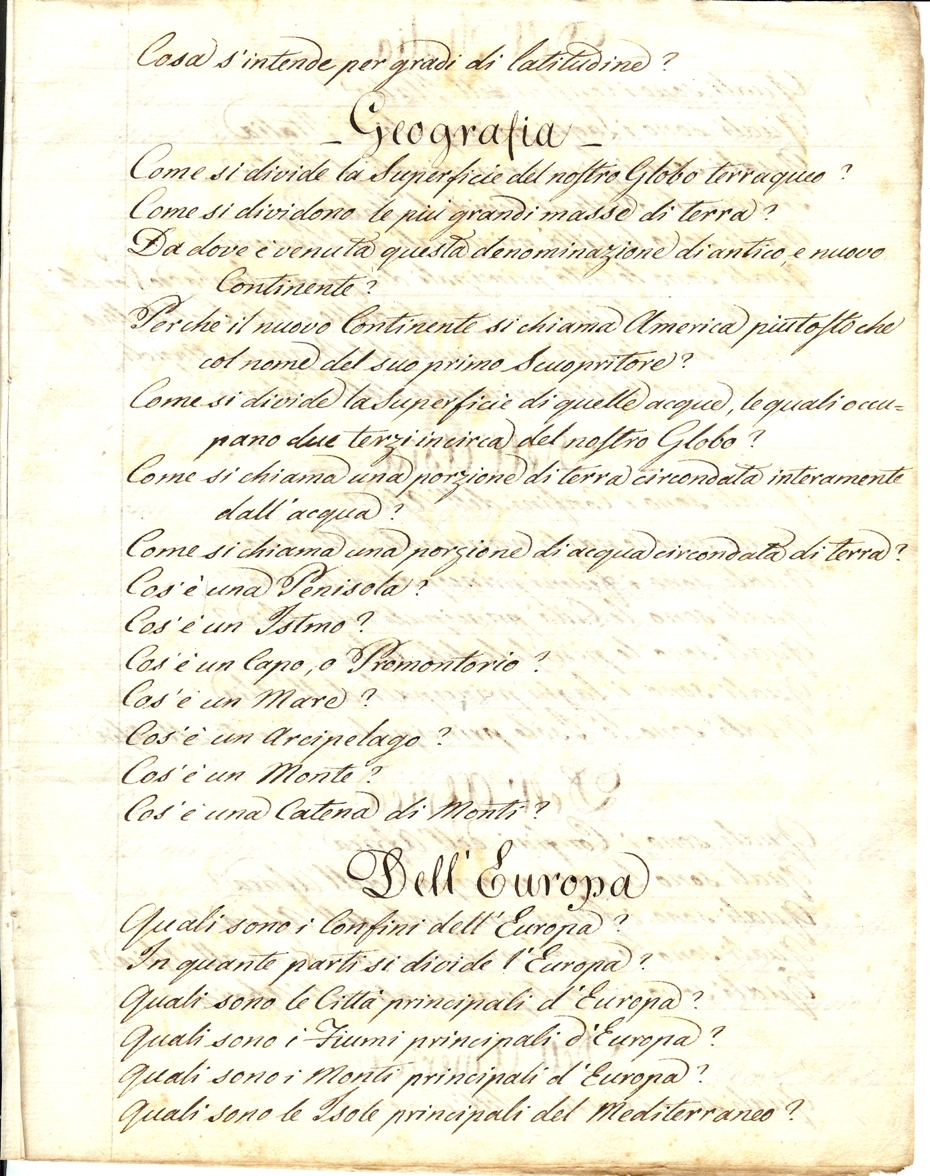 Cosa s'intende per gradi di latitudine?
- Geografia -
Come si divide la Superficie del nostro Globo terraqueo?
Come si dividono le più grandi masse di terra?
Da dove è venuta questa denominazione di antico, e nuovo
Continente?
Perchè il nuovo Continente si chiama America piutosto che
col nome del suo primo Scuopritore?
Come si divide la Superficie di quelle acque, le quali occu=
pano due terzi incirca del nostro Globo?
Come si chiama una porzione di terra circondata interamente
dall'acqua?
Come si chiama una porzione di acqua circondata di terra?
Cos'è una Penisola?
Cos'è un Istmo?
Cos'è un Capo, o Promontorio?
Cos'è un Mare?
Cos'è un Arcipelago?
Cos'è un Monte?
Cos'è una Catena di Monti?
Dell'Europa
Quali sono i Confini dell'Europa?
In quante parti si divide l'Europa?
Quali sono le Città principali d'Europa?
Quali sono i Fiumi principali d'Europa?
Quali sono i Monti principali d'Europa?
Quali sono le Isole principali del Mediterraneo?